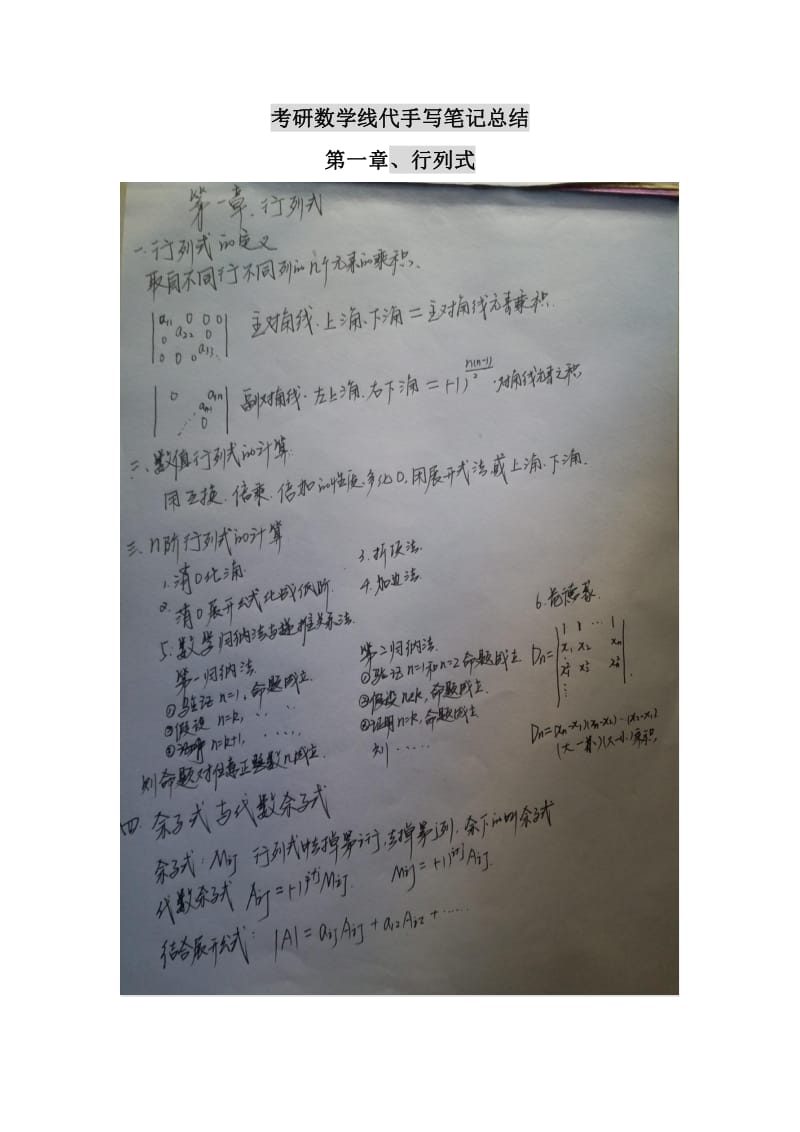 考研数学线代手写笔记总结
第一章、行列式
第一章、行列式
一.行列式的定义
取自不同行不同列的n个元素的乘积、
|a11 0 0 0|
|0 a22 0|
|0 0 0 a33.|
主对角线.上三角.下三角=主对角线元素乘积.
|0 a1n|
|0|
副对角线.左上三角.右下三角=(-1)^(n(n-1)/2)·对角线元素之积
二、数值行列式的计算.
用互换.倍乘.倍加的性质,多化0,用展开式法或上三角.下三角.
三.n阶行列式的计算
1.消0化三角.
2.消0展开公式化成低阶.
3.拆项法.
4.加边法.
5.数学归纳法与递推关系法.
第一归纳法.
①验证n=1,命题成立.
②假设n=k,‥‥
③证明n=k+1,‥‥.
则命题对任意正整数n成立.
第二归纳法.
①验证n=1和n=2命题成立
②假设n<k,命题成立.
③证明n=k,命题成立.
则‥‥‥
6.范德蒙.
Dn=
|1 1 ⋯ 1|
|x1 x2 xn|
|x1² x2² xn²|
|⋮|
Dn=(xn-x1)(xn-x2)⋯(x2-x1)
四 余子式与代数余子式
余子式:Mij 行列式中去掉第i行,去掉第j列,余下的叫余子式
代数余子式 Aij=(-1)^(i+j)Mij. Mij=(-1)^(i+j)Aij.
结合展开公式: |A|=aijAij+ai2Ai2+⋯⋯